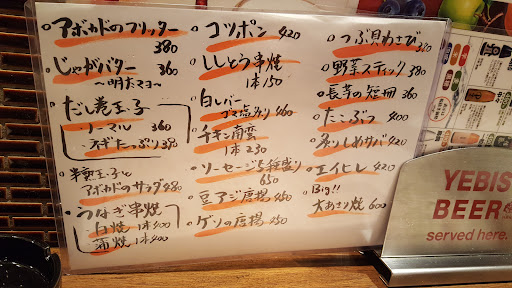 アボカドのフリッター
380
じゃがバター 360
〜明太マヨ〜
だし巻玉子
ノーマル 360
ネギたっぷり 390
半熟玉子と
アボカドのサラダ 480
うなぎ串焼
白焼 1本400
蒲焼 1本400
コツポン 420
ししとう串焼
1本150
白レバー
ゴマ塩みり 460
チキン南蛮
1本230
ソーセージ5種盛り
650
豆アジ唐揚 450
ゲソの唐揚 450
つぶ貝わさび
320
野菜スティック 380
長芋の短冊 360
たこぶつ 400
炙りしめサバ 420
エイヒレ 420
Big!!
大あさり焼 600
YEBIS
BEER
served here.